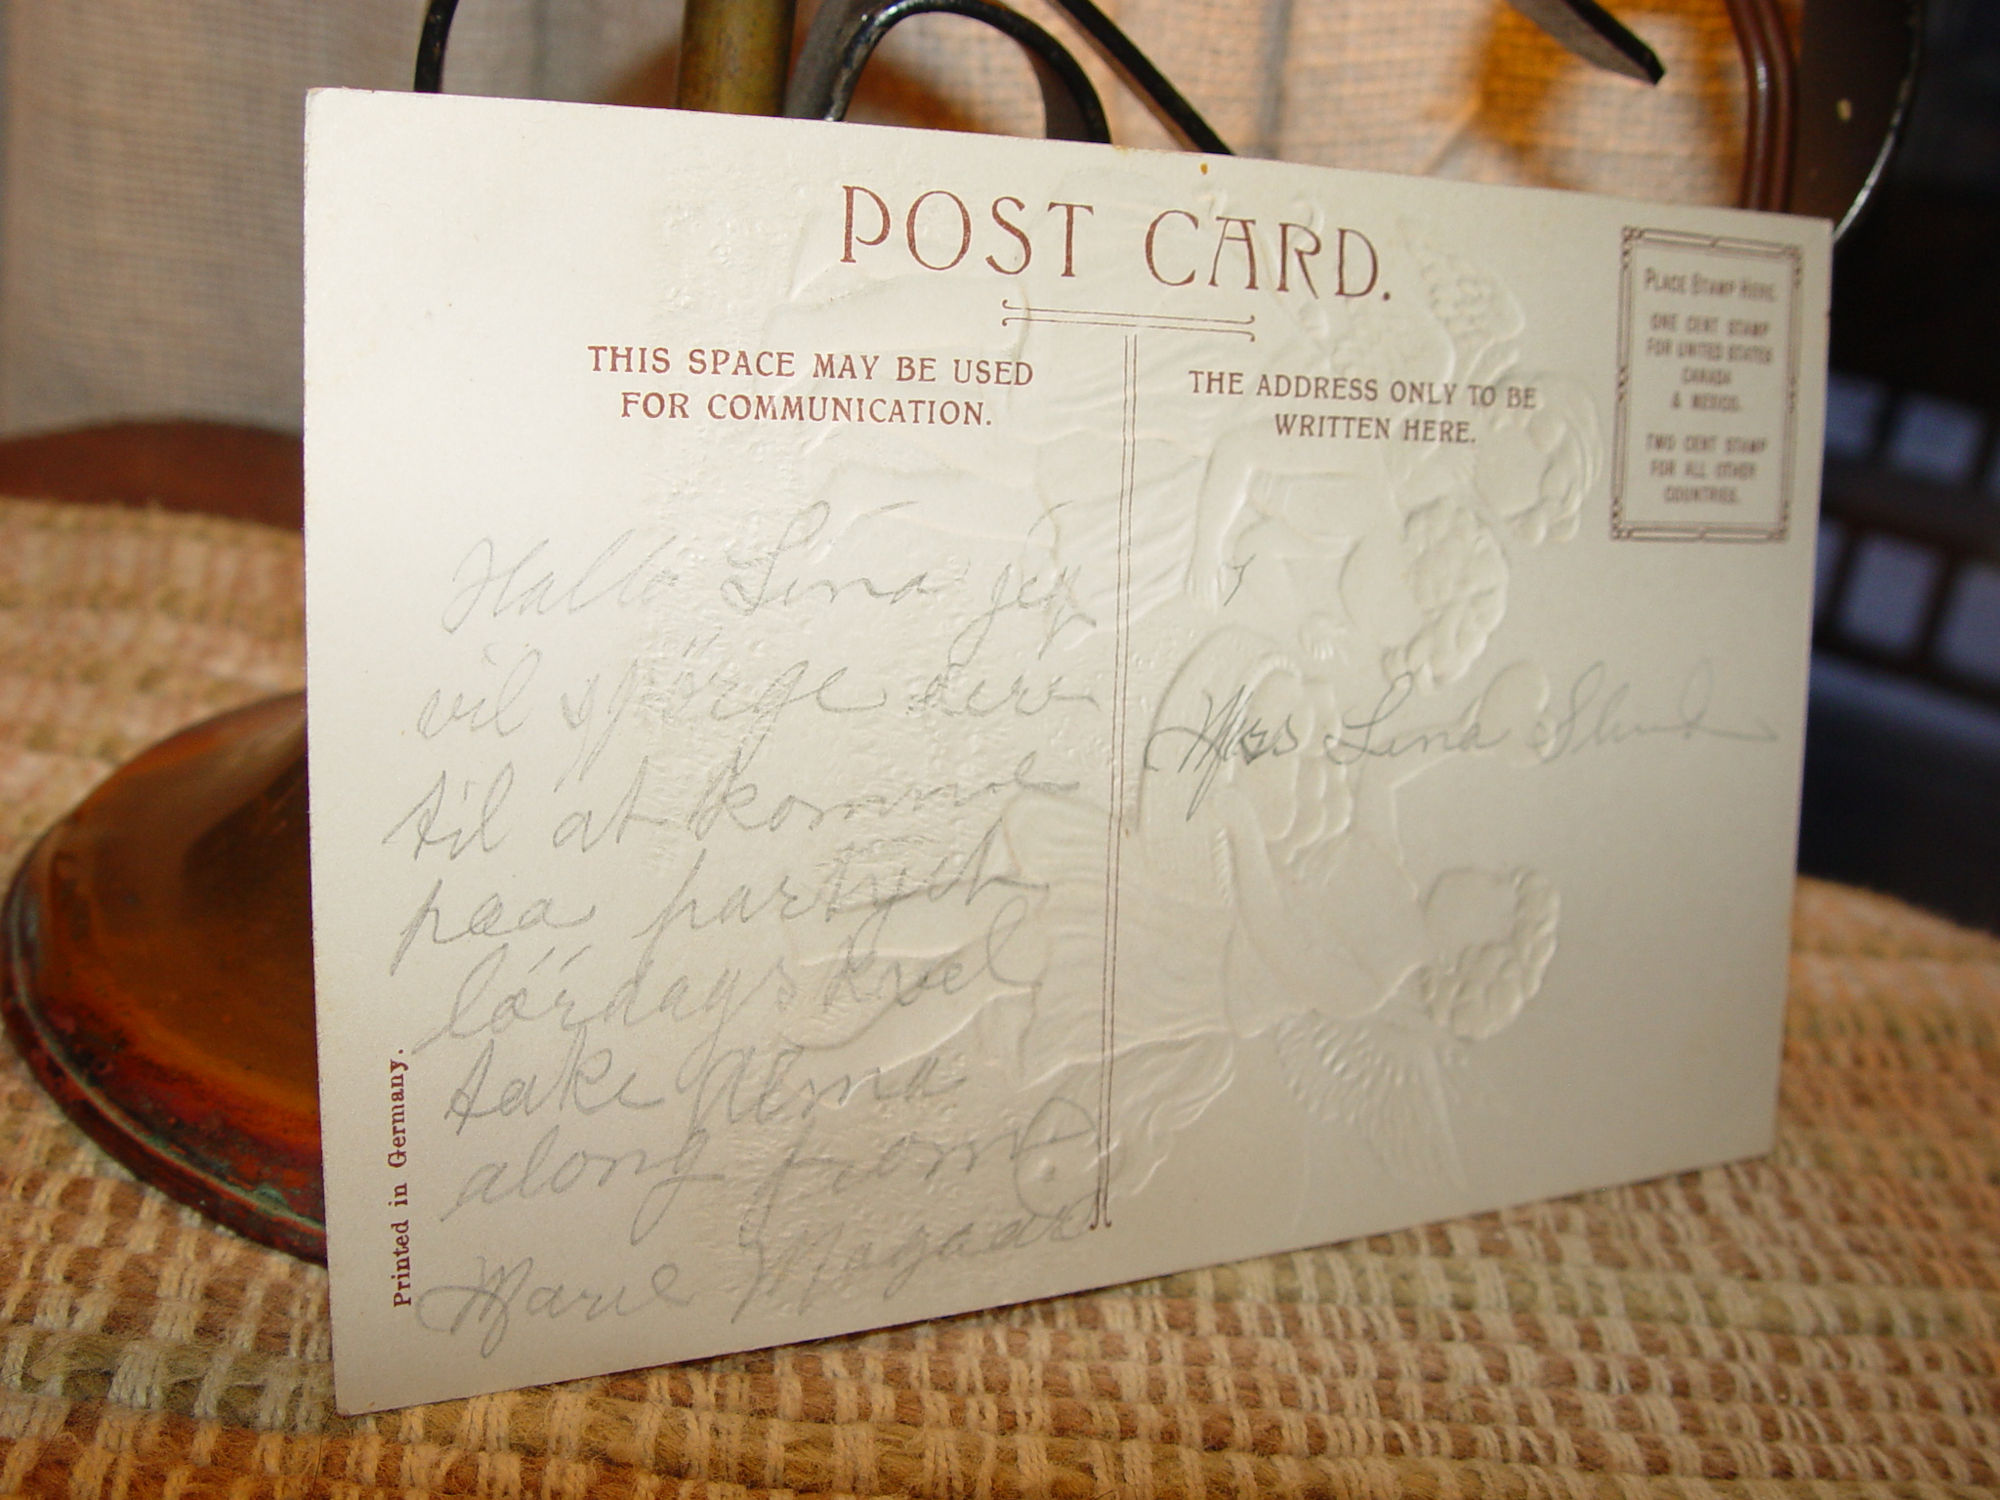 POST CARD.
THIS SPACE MAY BE USED
FOR COMMUNICATION.
THE ADDRESS ONLY TO BE
WRITTEN HERE.
PLACE STAMP HERE.
ONE CENT STAMP
FOR UNITED STATES
CANADA
& MEXICO.
TWO CENT STAMP
FOR ALL OTHER
COUNTRIES.
Hallo Lina jeg
vil spörge dere
til at komme
paa partyet
lördagskvel
take Alma
along from
Marie Mogaard
Mrs Lina
Printed in Germany.